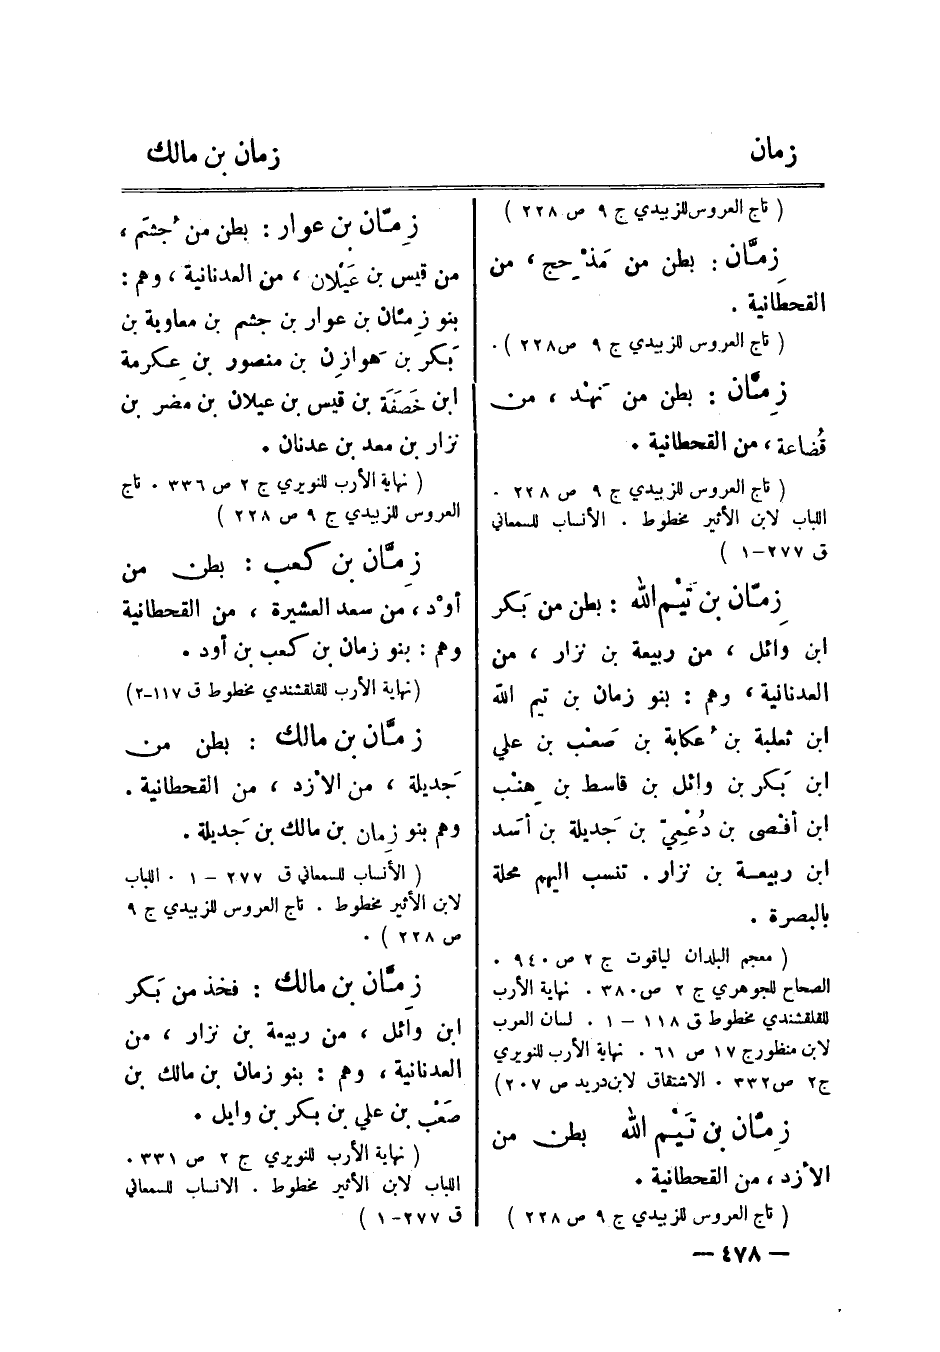 زمان
زمان بن مالك
( تاج العروس للزبيدي ج ٩ ص ٢٢٨ )
زِمَّان : بطن من مَذْحِج ، من
القحطانية .
( تاج العروس للزبيدي ج ٩ ص ٢٢٨ ) .
زِمَّان : بطن من نَهْد ، من
قُضاعة ، من القحطانية .
( تاج العروس للزبيدي ج ٩ ص ٢٢٨ .
اللباب لابن الأثير مخطوط . الأنساب للسمعاني
ق ٢٧٧-١ )
زِمّان بن تَيْم الله : بطن من بَكر
ابن وائل ، من ربيعة بن نزار ، من
العدنانية ، وهم : بنو زمان بن تيم الله
ابن ثعلبة بن عُكابة بن صَعْب بن علي
ابن بَكر بن وائل بن قاسط بن هِنْب
ابن أفْصى بن دُعْمِيّ بن جَديلة بن أسَد
ابن ربيعة بن نزار . تنسب اليهم محلة
بالبصرة .
( معجم البلدان لياقوت ج ٢ ص ٩٤٠ .
الصحاح للجوهري ج ٢ ص ٣٨٠ . نهاية الأرب
للقلقشندي مخطوط ق ١١٨ - ١ . لسان العرب
لابن منظور ج ١٧ ص ٦١ . نهاية الأرب للنويري
ج٢ ص ٣٣٢ . الاشتقاق لابن دريد ص ٢٠٧)
زِمَّان بن تَيْم الله بطن من
الأزد ، من القحطانية .
( تاج العروس للزبيدي ج ٩ ص ٢٢٨ )
زِمّان بن عوار : بطن من جُشَم ،
من قيس بن عَيْلان ، من العدنانية ، وهم :
بنو زمّان بن عوار بن جشم بن معاوية بن
بَكر بن هَوازِن بن منصور بن عِكرمة
ابن خَصَفَة بن قيس بن عيلان بن مضر بن
نزار بن معد بن عدنان .
( نهاية الأرب للنويري ج ٢ ص ٣٣٦ . تاج
العروس للزبيدي ج ٩ ص ٢٢٨ )
زِمَّان بن كعب : بطن من
أوْد ، من سعد العشيرة ، من القحطانية
وهم : بنو زمان بن كعب بن أود .
(نهاية الأرب للقلقشندي مخطوط ق ١١٧-٢)
زِمَّان بن مالك : بطن من
جَديلة ، من الأزد ، من القحطانية .
وهم بنو زِمان بن مالك بن جَديلة .
( الأنساب للسمعاني ق ٢٧٧ - ١ . اللباب
لابن الأثير مخطوط . تاج العروس للزبيدي ج ٩
ص ٢٢٨ ) .
زِمَّان بن مالك : فخذ من بَكر
ابن وائل ، من ربيعة بن نزار ، من
العدنانية ، وهم : بنو زمان بن مالك بن
صَعْب بن علي بن بكر بن وايل .
( نهاية الأرب للنويري ج ٢ ص ٣٣١ .
اللباب لابن الأثير مخطوط . الانساب للسمعاني
ق ٢٧٧-١ )
— ٤٧٨ —